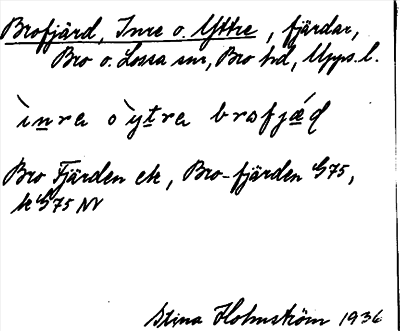 Brofjärd, Inre o. Yttre, fjärdar,
Bro o. Lossa snr, Bro hd, Upps. l.
ìnra o ỳtra brofjǽḍ
Bro Fjärden ek, Bro-fjärden G75,
k G75 NV
Stina Holmström 1936